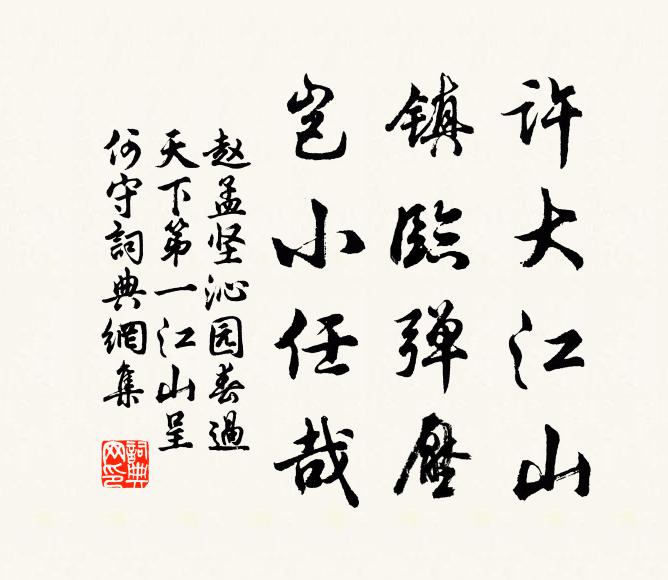 許大江山
鎮臨弹壓
岂小任哉
赵孟坚沁园春過
天下第一江山呈
何守詞典網集
詞典網印